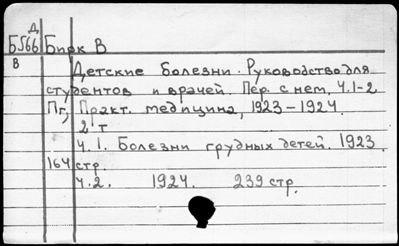 Д
Б566 Бирк В
В
Детские болезни. Руководство для
студентов и врачей. Пер. с нем, Ч.1-2
Пг, Практ. медицина, 1923-1924.
2 т
Ч.1. Болезни грудных детей. 1923.
164 стр.
Ч.2. 1924. 239 стр.